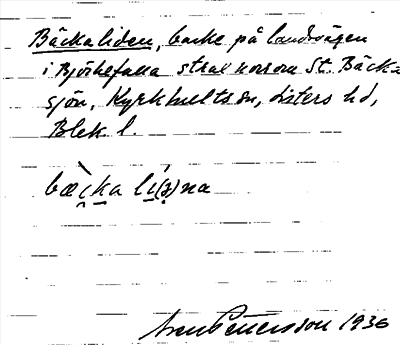 Bäckaliden, backe på landsvägen
i Björkefalla strax norrom St. Bäcka
sjön, Kyrkhults sn, Listers hd,
Blek l.
bæ̀cka lí(ʒ)na
Sven Petersson 1936